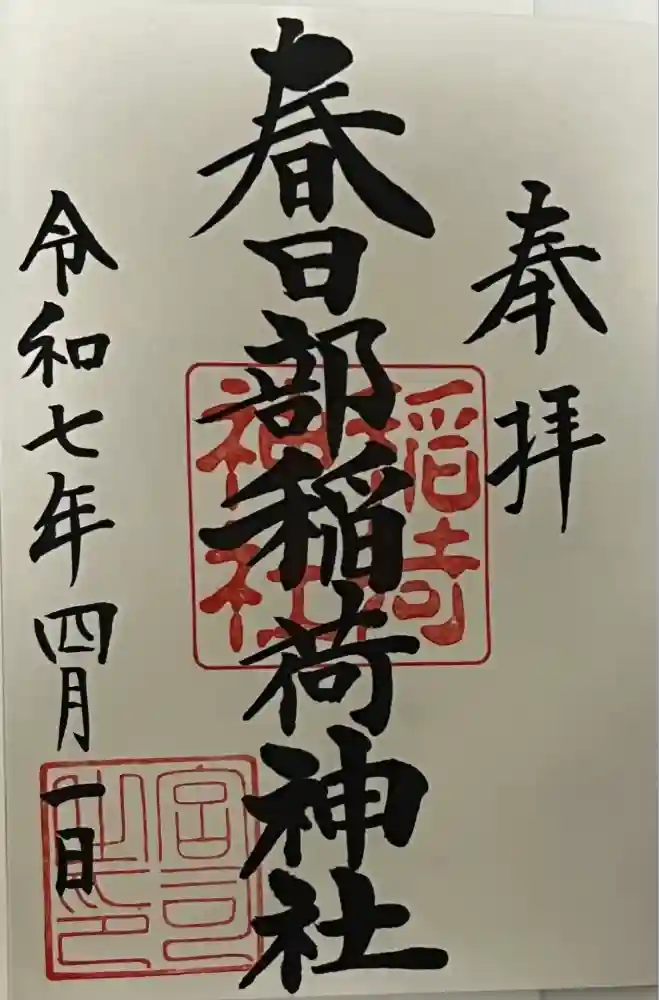 奉拝
春日部稲荷神社
令和七年四月一日
稲荷
神社